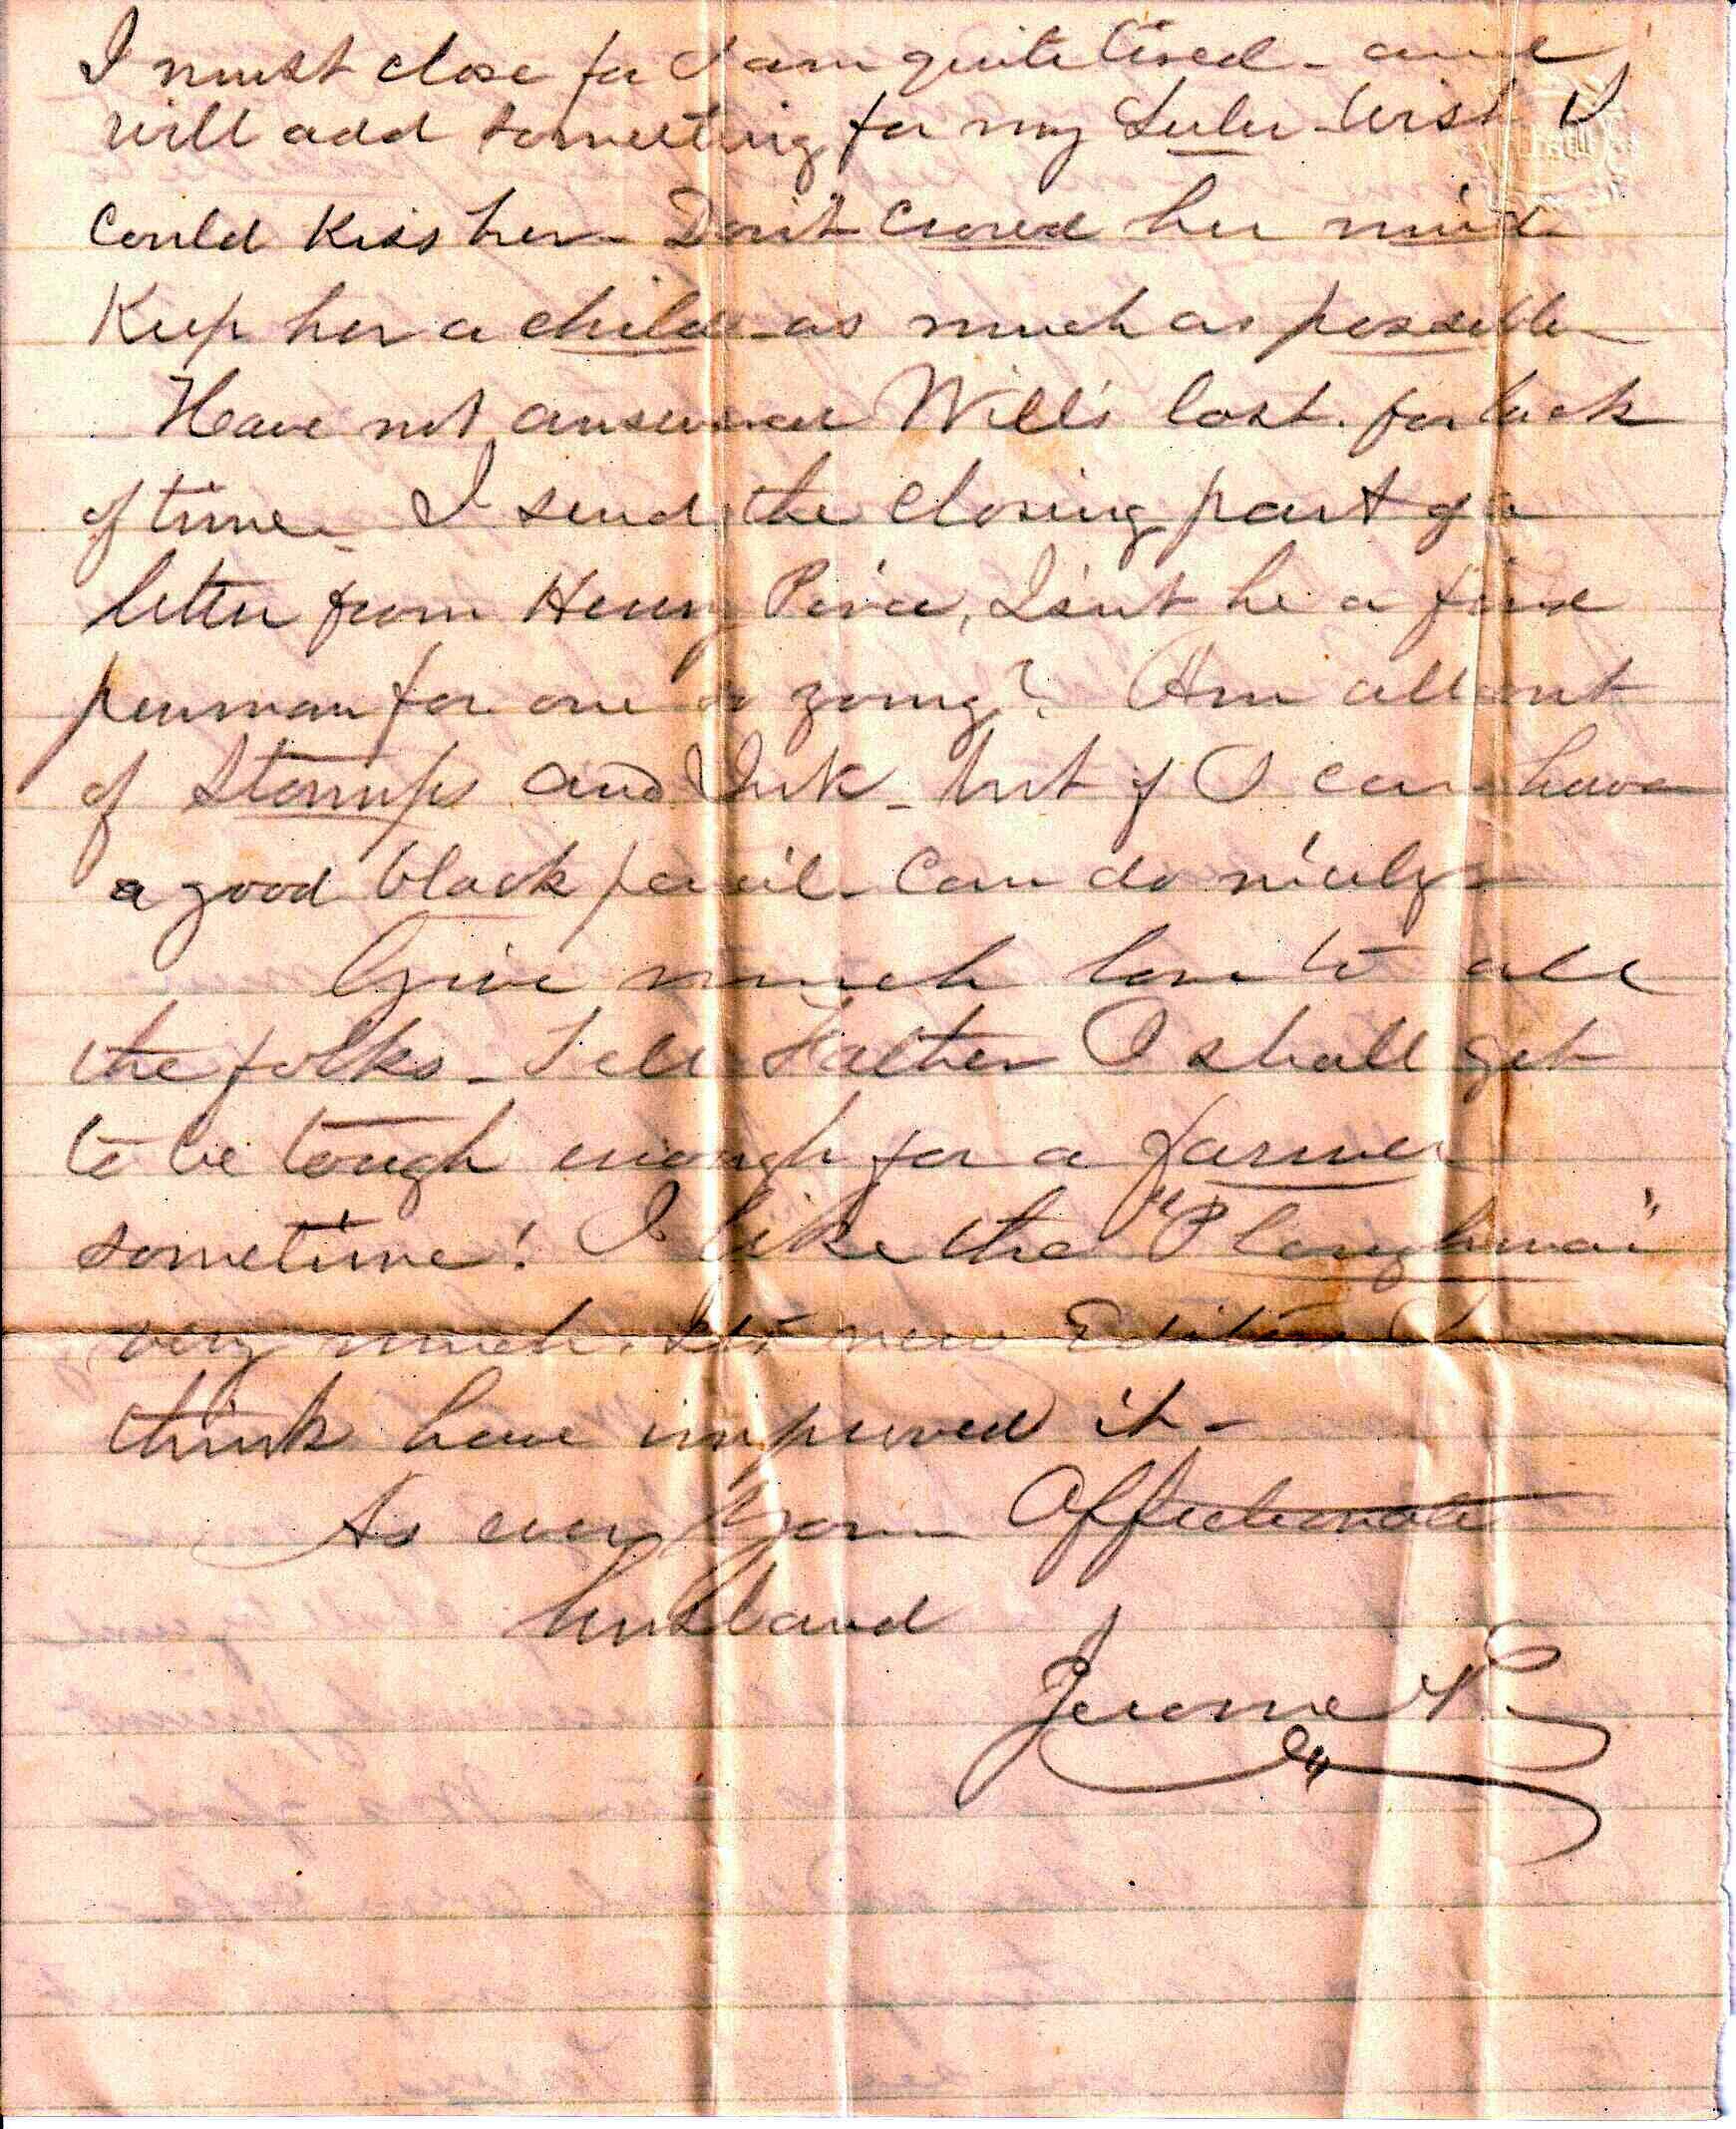 I must close for I am quite tired - and
will add something for my Lulu - Wish I
could Kiss her - Don't crowd her mind
Keep her a child - as much as possible
Have not answered Will's last. for lack
of time - I send the closing part of a
letter from Henry Peirce, Isn't he a fine
penman for one so young? Am all out
of Stamps and Ink - but if I can have
a good black pencil - Can do nicely -
Give much love to all
the folks - Tell Father I shall get
to be tough enough for a farmer
sometime! I like the "Ploughman"
very much. Its new Editors I
think have improved it -
As ever Your Affectionate
husband
Jerome P.